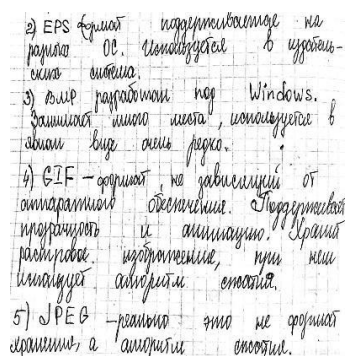 2) EPS формат поддерживается на
разных ОС. Используется в издатель-
ских системах.
3) BMP разработан под Windows.
Занимает много места, используется в
явном виде очень редко.
4) GIF – формат не зависящий от
аппаратного обеспечения. Поддерживает
прозрачность и анимацию. Хранит
растровое изображение, при нем
использует алгоритм сжатия.
5) JPEG – реально это не формат
хранения, а алгоритм сжатия.